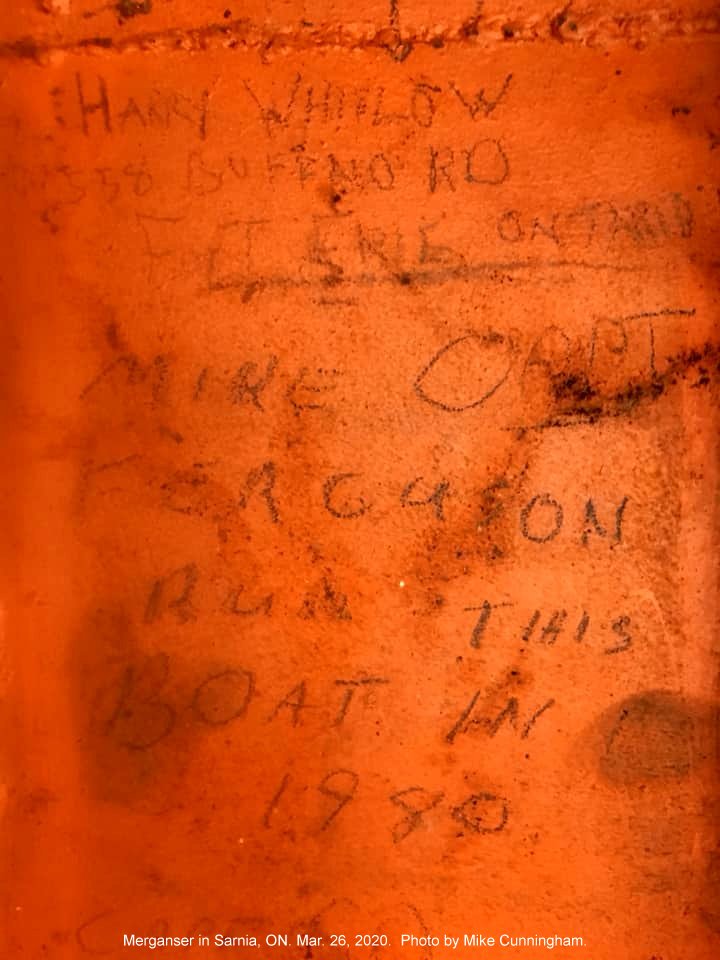 HARRY WHITLOW
558 BUFFALO RD
FORT ERIE ONTARIO
MIKE CAPT
FERGUSON
RUN THIS
BOAT IN
1980
Merganser in Sarnia, ON. Mar. 26, 2020. Photo by Mike Cunningham.